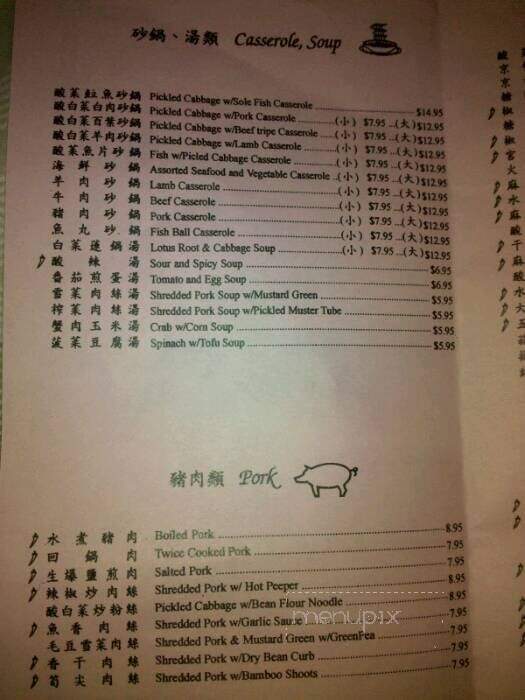 砂鍋、湯類 Casserole, Soup
酸菜魚砂鍋 Pickled Cabbage w/Sole Fish Casserole $14.95
酸白菜白肉砂鍋 Pickled Cabbage w/Pork Casserole (小) $7.95 ...(大) $12.95
酸白菜百葉砂鍋 Pickled Cabbage w/Beef tripe Casserole (小) $7.95 ...(大) $12.95
酸白菜羊肉砂鍋 Pickled Cabbage w/Lamb Casserole (小) $7.95 ...(大) $12.95
酸菜魚片砂鍋 Fish w/Picled Cabbage Casserole (小) $7.95 ...(大) $12.95
海鮮砂鍋 Assorted Seafood and Vegetable Casserole (小) $7.95 ...(大) $12.95
羊肉砂鍋 Lamb Casserole (小) $7.95 ...(大) $12.95
牛肉砂鍋 Beef Casserole (小) $7.95 ...(大) $12.95
豬肉砂鍋 Pork Casserole (小) $7.95 ...(大) $12.95
魚丸砂鍋 Fish Ball Casserole (小) $7.95 ...(大) $12.95
白菜蓮鍋湯 Lotus Root & Cabbage Soup (小) $7.95 ...(大) $12.95
酸辣湯 Sour and Spicy Soup $6.95
番茄煎蛋湯 Tomato and Egg Soup $6.95
雪菜肉絲湯 Shredded Pork Soup w/Mustard Green $5.95
榨菜肉絲湯 Shredded Pork Soup w/Pickled Muster Tube $5.95
蟹肉玉米湯 Crab w/Corn Soup $5.95
菠菜豆腐湯 Spinach w/Tofu Soup $5.95
豬肉類 Pork
水煮豬肉 Boiled Pork 8.95
回鍋肉 Twice Cooked Pork 7.95
生爆鹽煎肉 Salted Pork 7.95
辣椒炒肉絲 Shredded Pork w/ Hot Peeper 8.95
酸白菜炒粉絲 Pickled Cabbage w/Bean Flour Noodle 8.95
魚香肉絲 Shredded Pork w/Garlic Sauce 7.95
毛豆雪菜肉絲 Shredded Pork & Mustard Green w/GreenPea 7.95
香干肉絲 Shredded Pork w/Dry Bean Curb 7.95
筍尖肉絲 Shredded Pork w/Bamboo Shoots 7.95
menupix